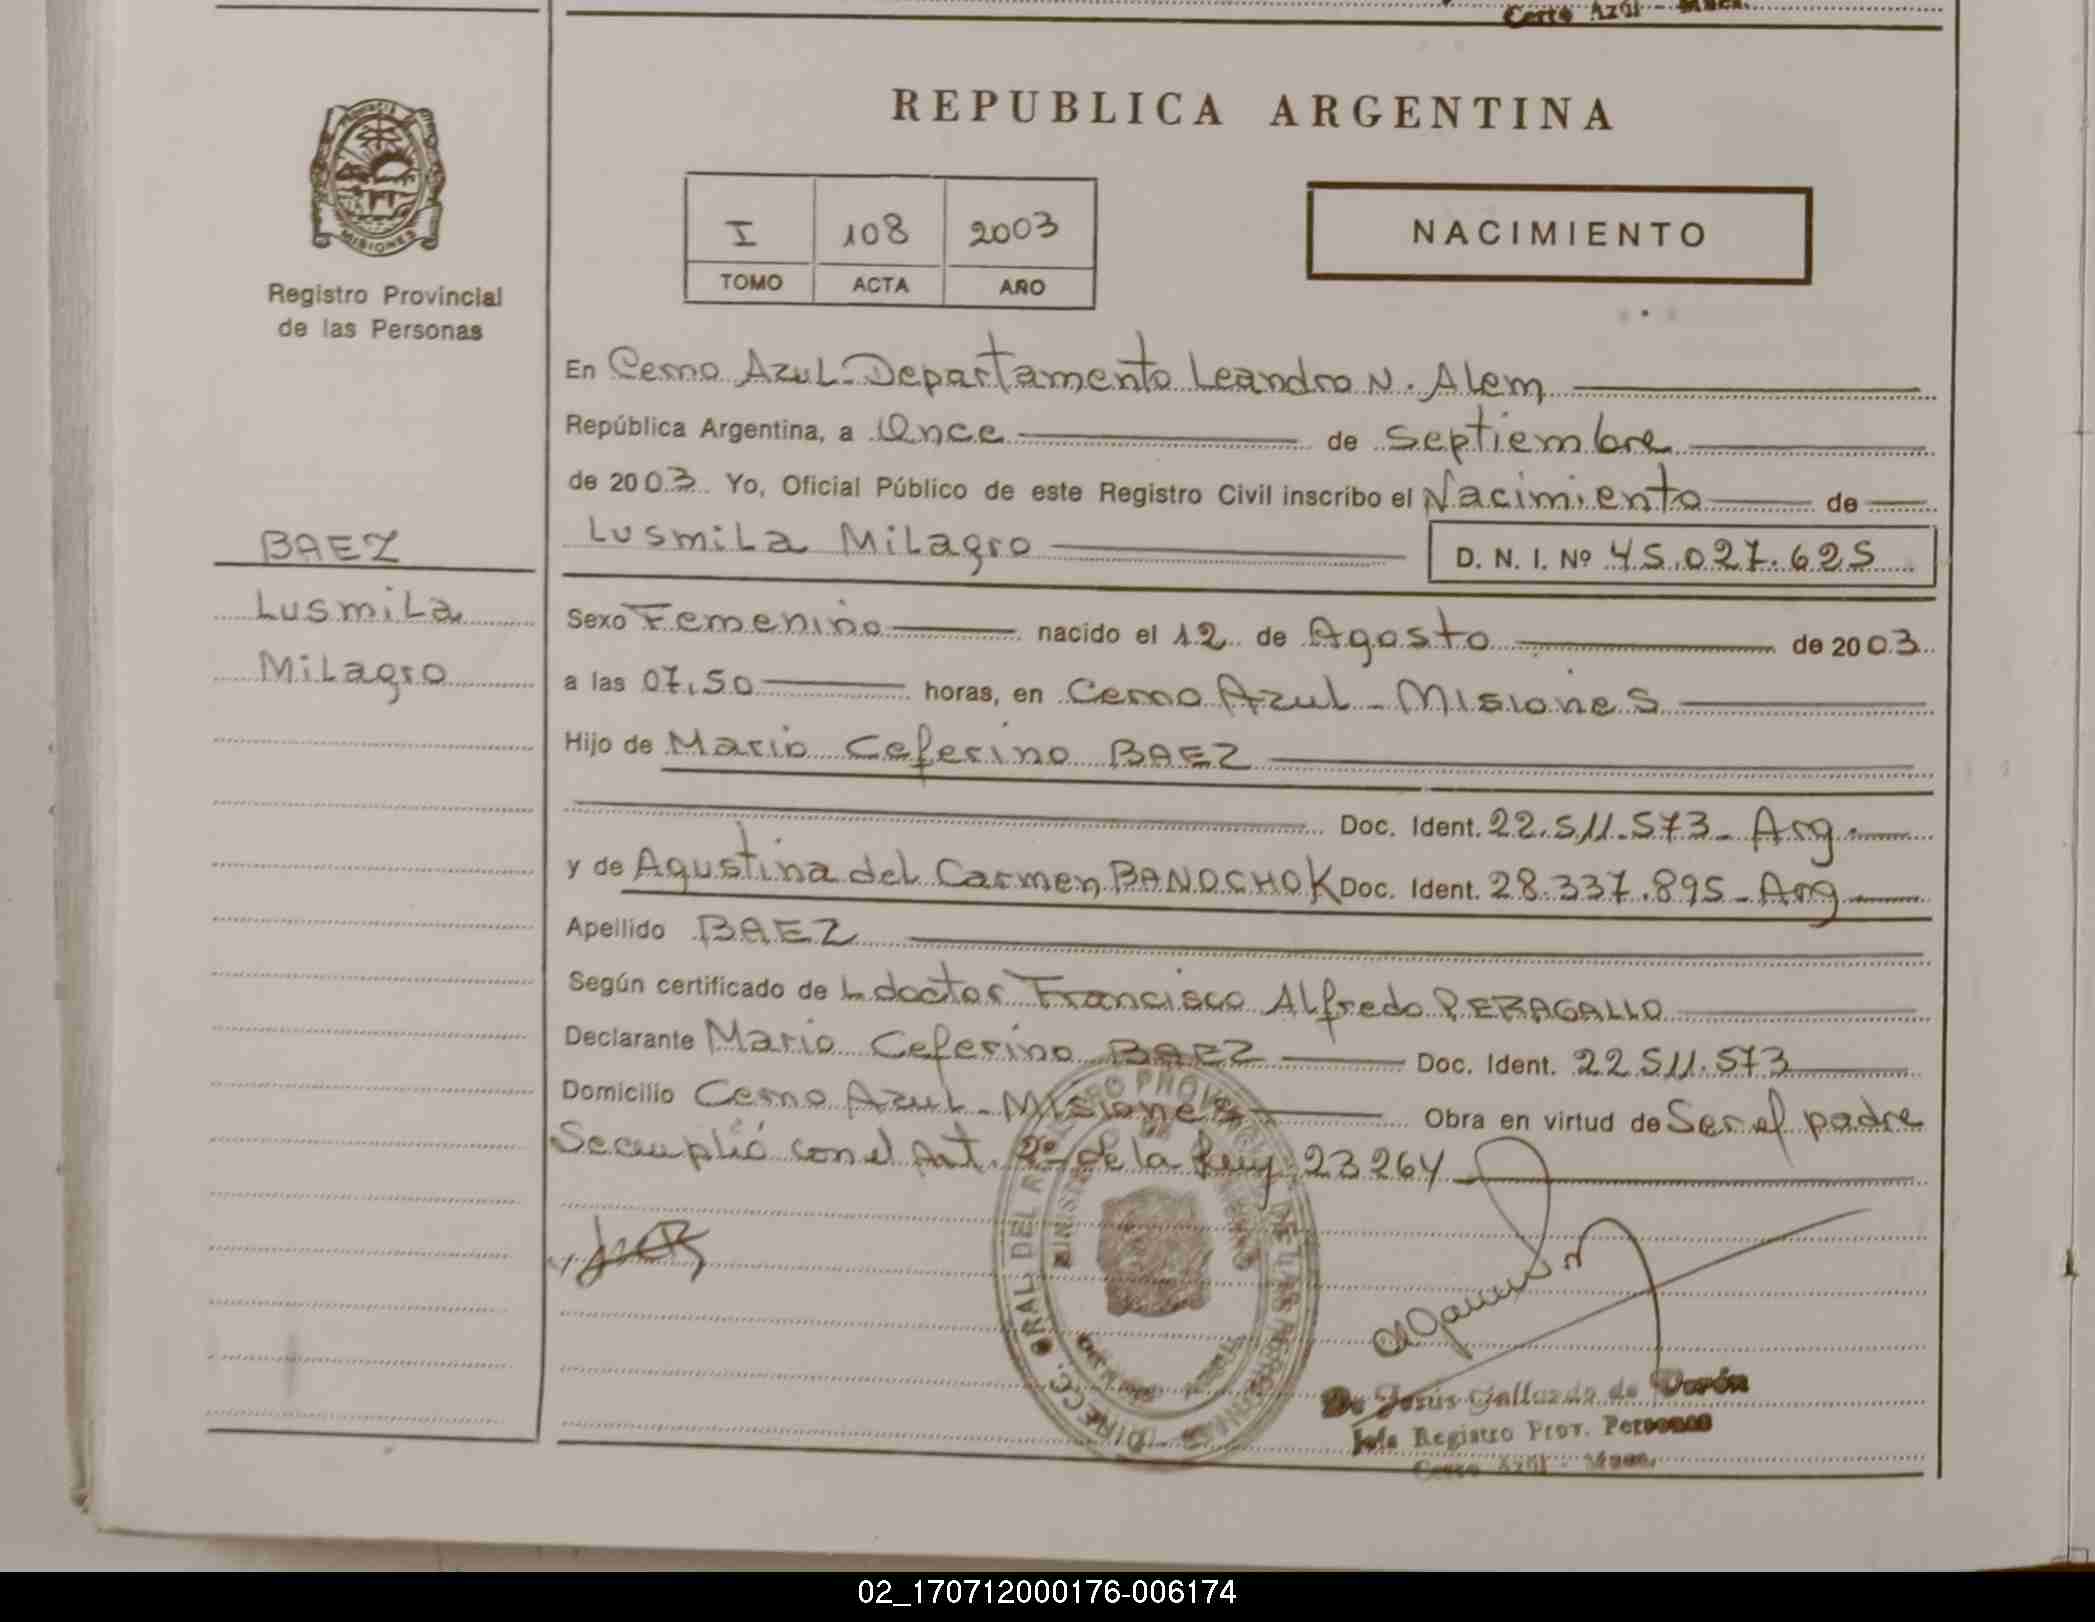 Cerro Azul - Mnes.
REPUBLICA ARGENTINA
PROVINCIA DE
MISIONES
Registro Provincial
de las Personas
I 108 2003
TOMO ACTA AÑO
NACIMIENTO
En Cerro Azul - Departamento Leandro N. Alem
República Argentina, a Once de Septiembre
de 2003 Yo, Oficial Público de este Registro Civil inscribo el Nacimiento de
Lusmila Milagro D. N. I. Nº 45.027.625
BAEZ
Lusmila
Milagro
Sexo Femenino nacido el 12 de Agosto de 2003
a las 07.50 horas, en Cerro Azul - Misiones
Hijo de Mario Ceferino BAEZ
Doc. Ident. 22.511.573 - Arg.
y de Agustina del Carmen BANOCHOK Doc. Ident. 28.337.895 - Arg
Apellido BAEZ
Según certificado de L doctor Francisco Alfredo PERAGALLO
Declarante Mario Ceferino BAEZ Doc. Ident. 22.511.573
Domicilio Cerro Azul - Misiones Obra en virtud de Ser el padre
Se cumplió con el Art. 2º de la Ley 23264
Jesús Gallardo de Durón
Jefe Registro Prov. Personas
Cerro Azul - Mnes.
02_170712000176-006174